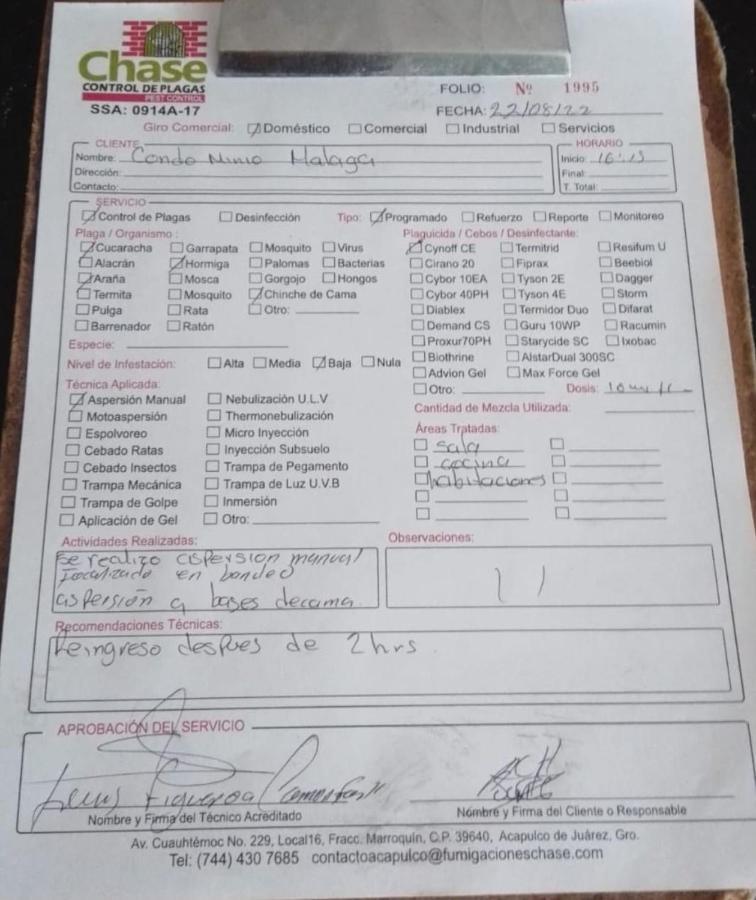 Chase
CONTROL DE PLAGAS
PEST CONTROL
SSA: 0914A-17
FOLIO: Nº 1995
FECHA: 22/08/22
Giro Comercial: Doméstico Comercial Industrial Servicios
CLIENTE
Nombre: Condo Minio Malaga
Dirección:
Contacto:
HORARIO
Inicio: 16:15
Final:
T. Total:
SERVICIO
Control de Plagas Desinfección Tipo: Programado Refuerzo Reporte Monitoreo
Plaga / Organismo:
Cucaracha Garrapata Mosquito Virus
Alacrán Hormiga Palomas Bacterias
Araña Mosca Gorgojo Hongos
Termita Mosquito Chinche de Cama
Pulga Rata Otro:
Barrenador Ratón
Especie:
Nivel de Infestación: Alta Media Baja Nula
Técnica Aplicada:
Aspersión Manual Nebulización U.L.V
Motoaspersión Thermonebulización
Espolvoreo Micro Inyección
Cebado Ratas Inyección Subsuelo
Cebado Insectos Trampa de Pegamento
Trampa Mecánica Trampa de Luz U.V.B
Trampa de Golpe Inmersión
Aplicación de Gel Otro:
Plaguicida / Cebos / Desinfectante:
Cynoff CE Termitrid Resifum U
Cirano 20 Fiprax Beebiol
Cybor 10EA Tyson 2E Dagger
Cybor 40PH Tyson 4E Storm
Diablex Termidor Duo Difarat
Demand CS Guru 10WP Racumin
Proxur70PH Starycide SC Ixobac
Biothrine AlstarDual 300SC
Advion Gel Max Force Gel
Otro: Dosis:
Cantidad de Mezcla Utilizada:
Áreas Tratadas:
sala
cocina
habitaciones
Actividades Realizadas:
se realizo aspersion manual
focalizado en bondeo
aspersión a bases de cama
Observaciones:
Recomendaciones Técnicas:
Reingreso despues de 2 hrs.
APROBACIÓN DEL SERVICIO
Figueroa
Nombre y Firma del Técnico Acreditado
Nombre y Firma del Cliente o Responsable
Av. Cuauhtémoc No. 229, Local16, Fracc. Marroquín, C.P. 39640, Acapulco de Juárez, Gro.
Tel: (744) 430 7685 contactoacapulco@fumigacioneschase.com